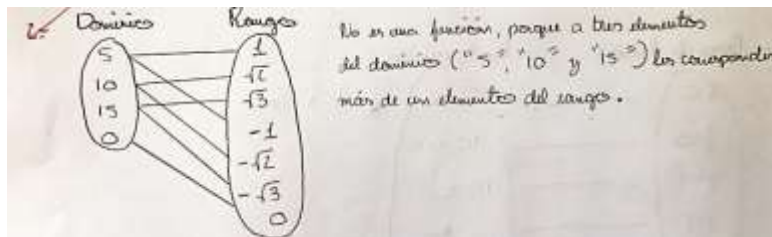 2.-
Dominio
Rango
5
10
15
0
1
√2
√3
-1
-√2
-√3
0
No es una función, porque a tres elementos
del dominio ("5", "10" y "15") les corresponden
más de un elementos del rango.